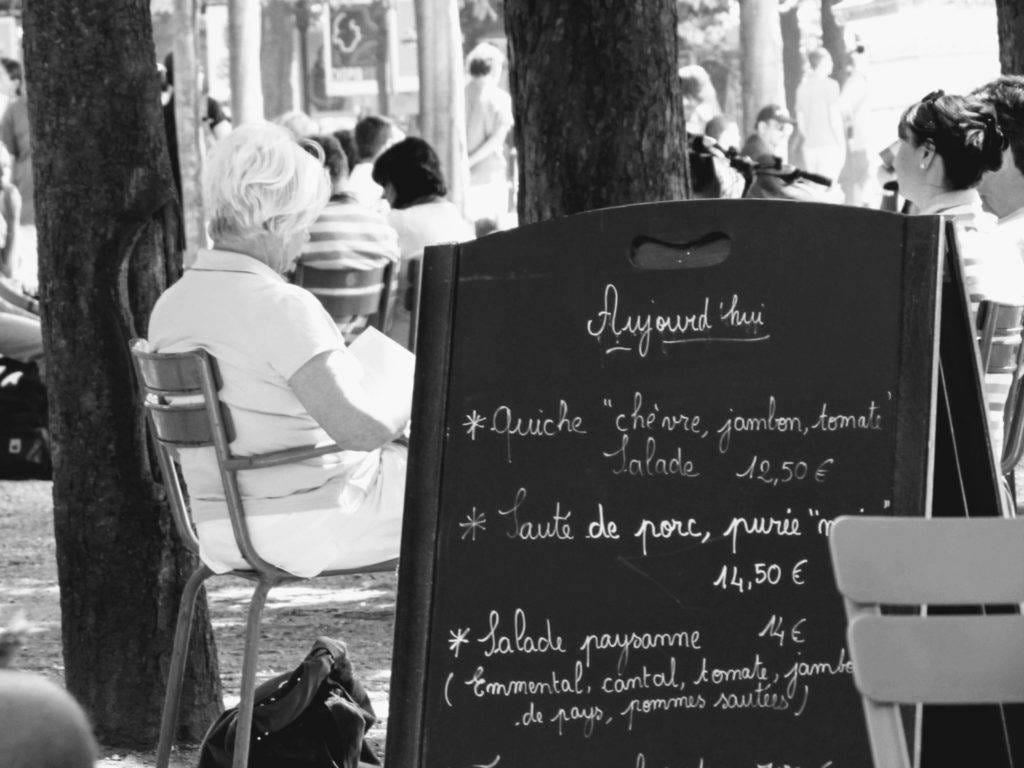 Aujourd'hui
* Quiche "chèvre, jambon, tomate"
Salade 12,50 €
* Sauté de porc, purée
14,50 €
* Salade paysanne 14 €
(Emmental, cantal, tomate, jambo
de pays, pommes sautées)